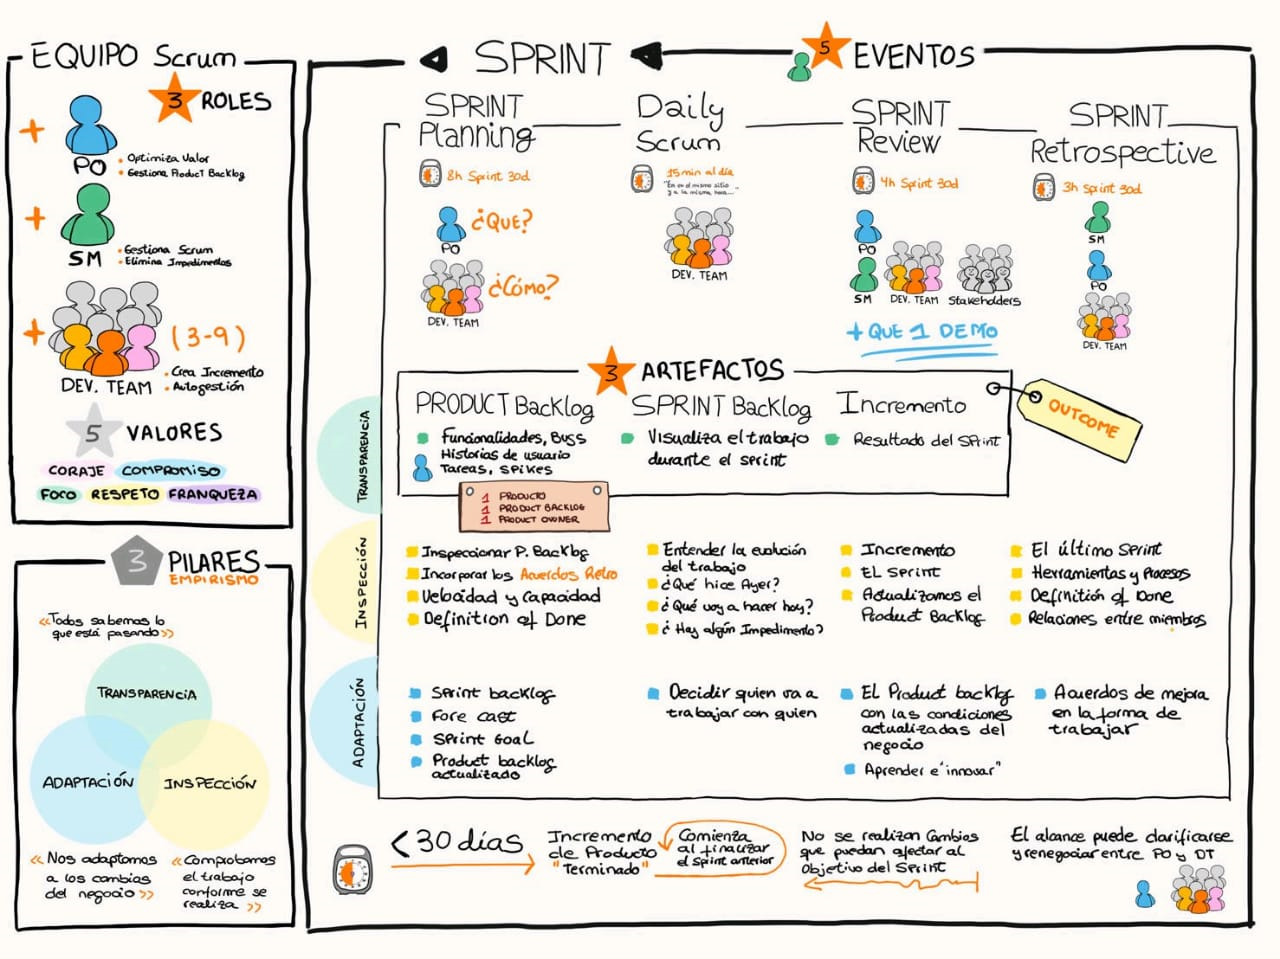 EQUIPO Scrum
3 ROLES
+
PO
• Optimiza Valor
• Gestiona Product Backlog
+
SM
• Gestiona Scrum
• Elimina Impedimentos
+
(3-9)
DEV. TEAM
• Crea Incremento
• Autogestión
5 VALORES
CORAJE COMPROMISO
FOCO RESPETO FRANQUEZA
3 PILARES
EMPIRISMO
«Todos sabemos lo
que está pasando»
TRANSPARENCIA
ADAPTACIÓN
INSPECCIÓN
«Nos adaptamos
a los cambios
del negocio»
«Comprobamos
el trabajo
conforme se
realiza»
SPRINT
5 EVENTOS
SPRINT
Planning
8h Sprint 30d
PO
¿QUE?
DEV. TEAM
¿CÓMO?
Daily
Scrum
15min al día
"En en el mismo sitio
y a la misma hora..."
DEV. TEAM
SPRINT
Review
4h Sprint 30d
PO
SM
DEV. TEAM
Stakeholders
+ QUE 1 DEMO
SPRINT
Retrospective
3h Sprint 30d
SM
PO
DEV. TEAM
3 ARTEFACTOS
TRANSPARENCIA
PRODUCT Backlog
Funcionalidades, BUGS
Historias de usuario
Tareas, SPIKES
1 PRODUCTO
1 PRODUCT BACKLOG
1 PRODUCT OWNER
SPRINT Backlog
Visualiza el trabajo
durante el sprint
Incremento
Resultado del SPrint
OUTCOME
INSPECCIÓN
Inspeccionar P. Backlog
Incorporar los Acuerdos Retro
Velocidad y Capacidad
Definition of Done
Entender la evolución
del trabajo
¿Qué hice Ayer?
¿Qué voy a hacer hoy?
¿Hay algún Impedimento?
Incremento
EL SPrint
Actualizamos el
Product Backlog
El último Sprint
Herramientas y Procesos
Definition of Done
Relaciones entre miembros
ADAPTACIÓN
SPrint backlog
Fore cast
SPrint GoaL
Product backlog
actualizado
Decidir quien va a
trabajar con quien
EL Product backlog
con las condiciones
actualizadas del
negocio
Aprender e "innovar"
Acuerdos de mejora
en la forma de
trabajar
< 30 días
Incremento
de Producto
"Terminado"
Comienza
al finalizar
el Sprint anterior
No se realizan Cambios
que puedan afectar al
Objetivo del SPrint
El alcance puede clarificarse
y renegociar entre PO y DT